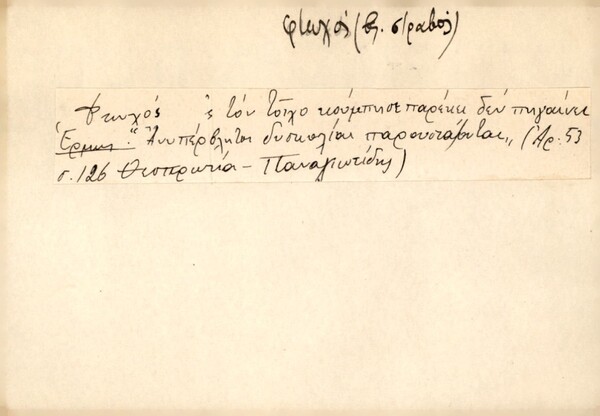 φτωχός (βλ. στραβός)
Φτωχός ς τόν τοῖχο κούμπησε παρέκει δέν πηγαίνει
Ἑρμην. "Ἀνυπέρβλητοι δυσκολίαι παρουσιάζονται" (Ἀρ. 53
σ. 126 Θεσπρωτία - Παναγιωτίδης)